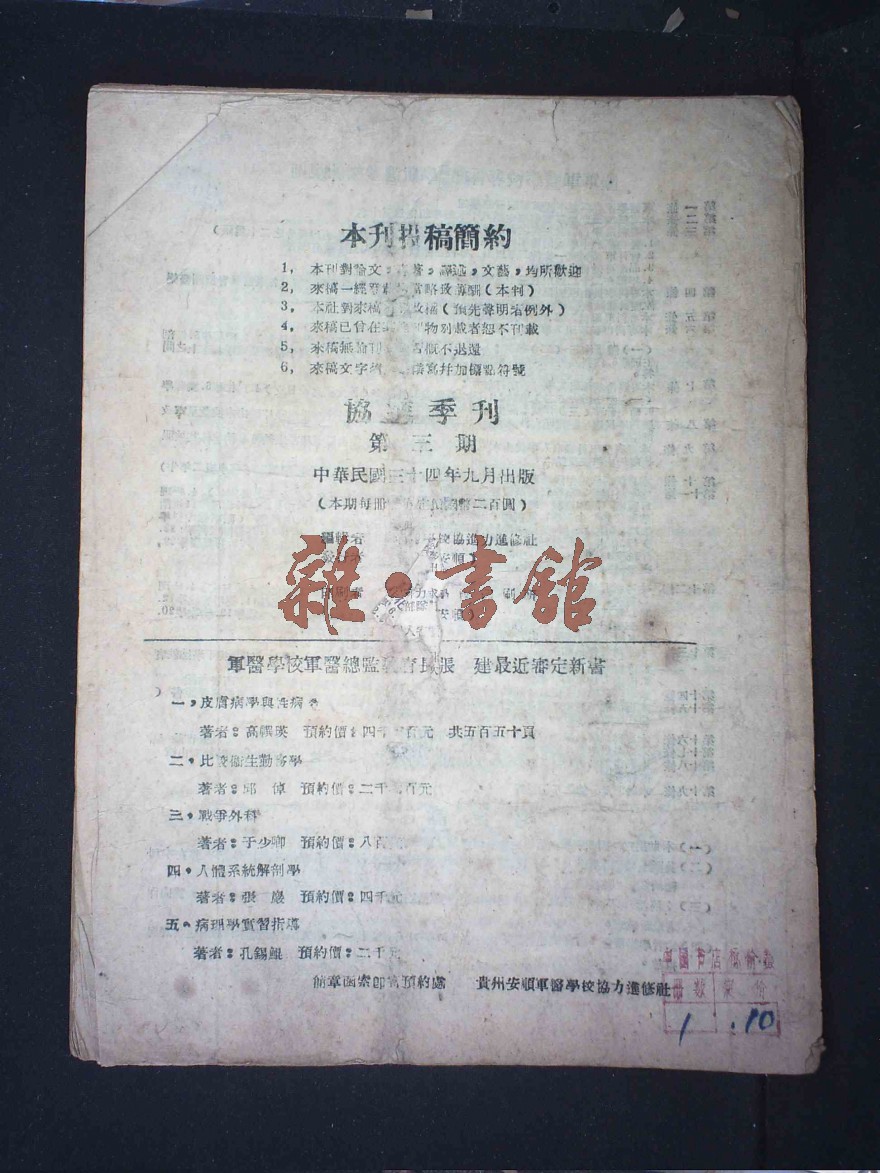 本刊投稿簡約
1， 本刊對論文， 著，譯述，文藝，均所歡迎
2， 來稿一經登 當略致薄酬（本刊）
3， 本社對來稿 改稿（預先聲明者例外）
4， 來稿已曾在 物刊載者恕不刊載
5， 來稿無論刊 槪不退還
6， 來稿文字 寫幷加標點符號
協進季刊
第三期
中華民國三十四年九月出版
（本期每册 國幣二百圓）
編輯者 校協進力進修社
安順
印刷者 刷
安順
雜·書館
軍醫學校軍醫總監教育長張 建最近審定新書
一，皮膚病學與性病
著者：高 瑛 預約價：四千 百元 共五百五十頁
二，比較衞生勤務學
著者：邱 倬 預約價：二千 百元
三，戰爭外科
著者：于少卿 預約價：八百
四，人體系統解剖學
著者：張 巖 預約價：四千元
五，病理學實習指導
著者：孔錫鯤 預約價：二千元
簡章函索卽寄預約處 貴州安順軍醫學校協力進修社
中國书店
册數 定价
1 .10